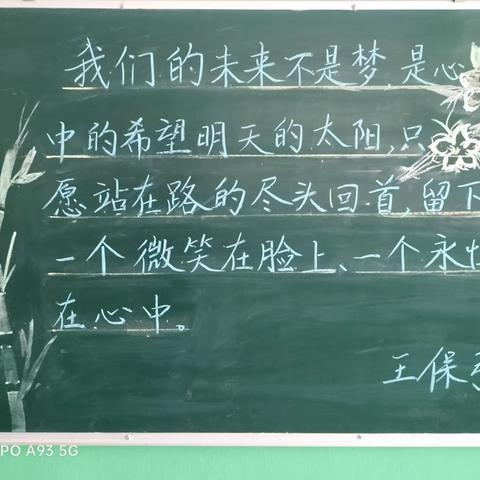 我们的未来不是梦,是心
中的希望明天的太阳,只
愿站在路的尽头回首,留下
一个微笑在脸上、一个永
在心中。
王保
PO A93 5G